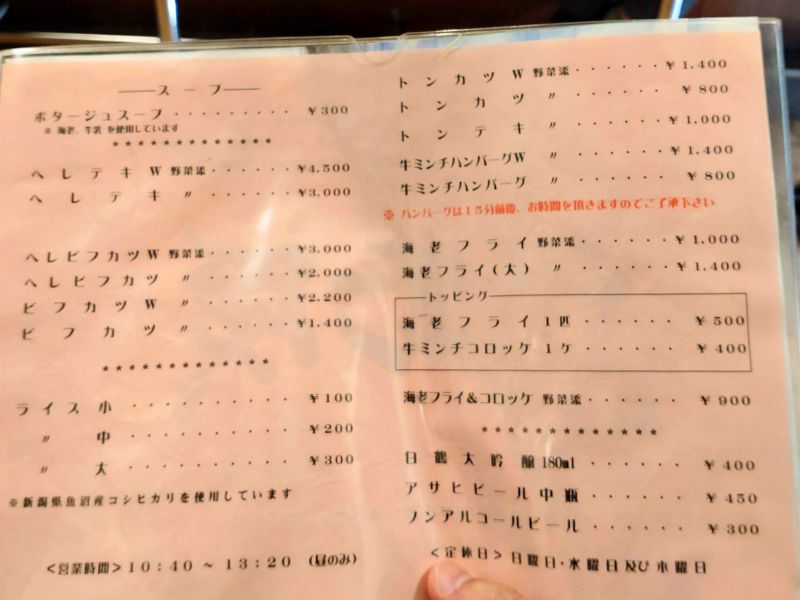 スープ
ポタージュスープ ・・・・・・・・・ ￥300
※ 海老、牛乳 を使用しています
＊＊＊＊＊＊＊＊＊＊＊＊＊
ヘレテキW 野菜添 ・・・・・・ ￥4,500
ヘレテキ 〃 ・・・・・・ ￥3,000
ヘレビフカツW 野菜添 ・・・・・・ ￥3,000
ヘレビフカツ 〃 ・・・・・・ ￥2,000
ビフカツW 〃 ・・・・・・ ￥2,200
ビフカツ 〃 ・・・・・・ ￥1,400
＊＊＊＊＊＊＊＊＊＊＊＊＊
ライス 小 ・・・・・・・・・・ ￥100
〃 中 ・・・・・・・・・・ ￥200
〃 大 ・・・・・・・・・・ ￥300
※新潟県魚沼産コシヒカリを使用しています
＜営業時間＞10:40 ～ 13:20 (昼のみ)
トンカツW 野菜添 ・・・・・・ ￥1,400
トンカツ 〃 ・・・・・・ ￥800
トンテキ 〃 ・・・・・・ ￥1,000
牛ミンチハンバーグW 〃 ・・・・・・ ￥1,400
牛ミンチハンバーグ 〃 ・・・・・・ ￥800
※ ハンバーグは15分前後、お時間を頂きますのでご了承下さい
海老フライ 野菜添 ・・・・・・ ￥1,000
海老フライ(大) 〃 ・・・・・・ ￥1,400
トッピング
海老フライ 1匹 ・・・・・・・ ￥500
牛ミンチコロッケ 1ケ ・・・・・・・ ￥400
海老フライ&コロッケ 野菜添 ・・・・・・ ￥900
＊＊＊＊＊＊＊＊＊＊＊＊＊
白鶴大吟醸 180ml ・・・・・・ ￥400
アサヒビール中瓶 ・・・・・・ ￥450
ノンアルコールビール ・・・・・・ ￥300
＜定休日＞ 日曜日・水曜日及び木曜日